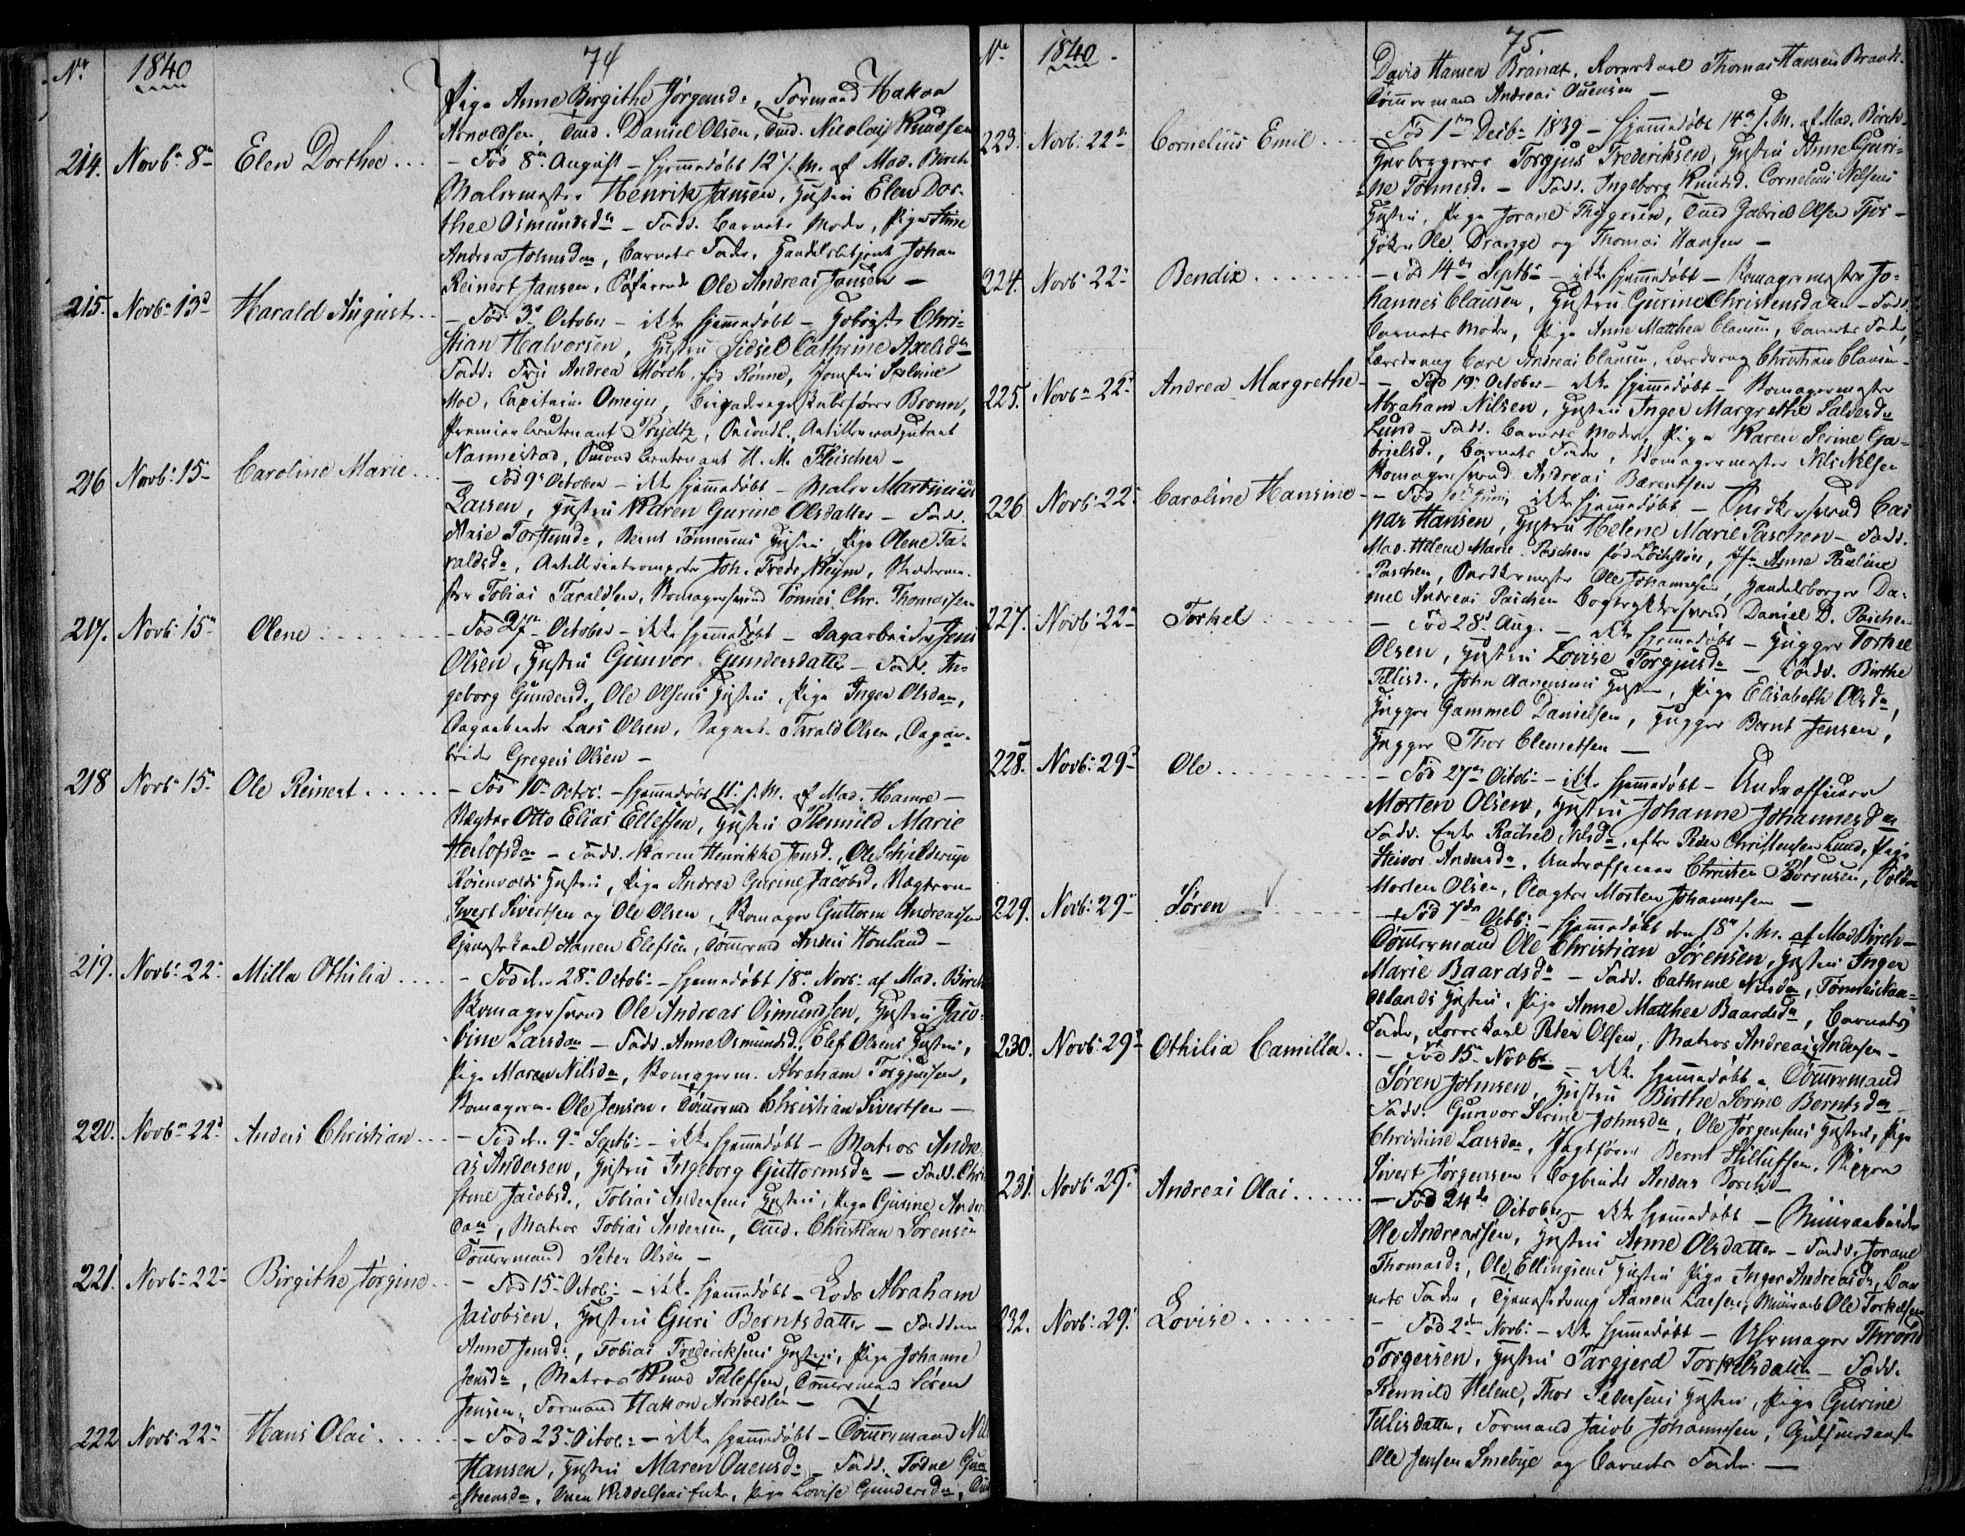 Nr 1840 74
Pige Anne Birgithe Jörgensd., Formand Hakon
Arnoldsen, Tmd. Daniel Olsen, Tmd. Nicolay Knudsen
214. Novbr 8de Elen Dorthee...
– Fød 8de August – hjemmedøbt 12 s. M. af Mad. Birch
Malermester Henrik Jansen, Hustru Elen Dor-
thee Osmundsdr – Fadd. Barnets Moder, Pige Stine
Andrea Johnsdr, Barnets Fader, Handelsbetjent Johan
Reinert Jansen, Ole Andreas Jansen –
215. Novbr 13de Harald August..
– Fød 3de October – ikke hjemmedøbt – Hoboist Chri-
stian Halvorsen, Hustru Sidsel Cathrine Axelsdr
Fadd: Andrea Mörch, fød Rönne, Jomfru
Moe, Capitain Omeyer, Bronen,
Premierlieutenant Prydtz,
Nannestad, Second Lieutenant H. M. Fleischer –
216 Novbr 15 Caroline Marie...
– Fød 9de October – ikke hjemmedøbt – Maler Martinius
Larsen, Hustru Karen Gurine Olsdatter – Fadd.
Aase Torstensdr, Bernt Tönnesens Hustru, Pige Olene Ta-
raldsd., Joh. Fredr. Heym,
Tobias Taraldsen, Skomagersvend Tönnes Chr. Thomassen
217. Novbr 15de Olene ......
– Fød 27de October – ikke hjemmedøbt – Dagarbeider Jens
Olsen, Hustru Gunvor Gundersdatter – Fadd. In-
geborg Gundersd., Ole Olsens Hustru, Pige Inger Olsdr,
Dagarbeider Lars Olsen, Tarald Olsen, Dagar-
beider Gregers Olsen –
218 Novbr 15de Ole Reinert.....
– Fød 10de Octobr – hjemmedøbt 11 s. M. af Mad. Hamre –
Vægter Otto Elias Ellefsen, Hustru Marie
– Fadd. Karen Henrikke Jensd.,
Hustru, Pige Andrea Gurine Jacobsd. Vægterne
Sivert Sivertsen og Ole Olsen, Skomager Guttorm Andreassen
Tjenestekarl Aanen Elefsen, Tömmermd Anders Houland –
219. Novbr 22de Milla Othilia....
– Fød den 28de Octobr – hjemmedøbt 18de Novbr af Mad. Birch
Skomagersvend Ole Andreas Osmundsen, Hustru Jaco-
bine Larsdr – Fadd. Anne Osmundsd., Elef Olsens Hustru,
Pige Maren Nilsdr, Skomagerm. Abraham Torgjusen,
Skomagerm. Ole Jensen, Tömmermd Christian Sivertsen –
220. Novbr 22de Anders Christian...
– Fød den 9de Septbr – ikke hjemmedøbt – Matros Andre-
as Andersen, Hustru Ingeborg Guttormsdr – Fadd. Chri-
stine Jacobsd., Tobias Andersens Hustru, Pige Gurine Anders
, Matros Tobias Andersen, Christian Sörensen
Tömmermand Peter Olsen –
221. Novbr 22de Birgithe Jörgine..
– Fød 15de Octobr – ikke hjemmedøbt – Lods Abraham
Jacobsen, Hustru Guri Berntsdatter – Faddere
Anne Jensdr, Tobias Frederiksens Hustru, Pige Johanne
Jensdr, Matros Knud Tellefsen, Tömmermand Sören
Jensen, Formand Hakon Arnoldsen –
222. Novbr 22de Hans Olai.....
– Fød 23de Octobr – ikke hjemmedøbt – Tömmermand Nils
Hansen, Hustru Maren Ouensdr – Fadd. Todne Gun-
steensdr, Ouen Enke, Pige Lovise Gundersdr,
Nr 1840 75
David Hansen Brandt, Rorerkarl Thomas Hansen Brandt
Tömmermand Andreas Ouensen –
223. Novbr 22de Cornelius Emil...
– Fød 1ste Decbr 1839 – hjemmedøbt 14de s. M. af Mad. Birch
Torgjus Frederiksen, Hustru Anne Guri-
ne Tönnesd. – Fadd. Ingeborg Knudsd. Cornelius Nilsens
Hustru, Pige Jorane Thygesen, Tmd Gabriel Olsen Tjos-
, Ole Drange og Thomas Hansen –
224. Novbr 22de Bendix......
– Fød 14de Septbr – ikke hjemmedøbt – Skomagermester Jo-
hannes Clausen, Hustru Gurine Christensdaan – Fadd.
Barnets Moder, Pige Anne Matthea Clausen, Barnets Fader,
Lærdreng Carl Andreas Clausen, Lærdreng Christian Clausen –
225. Novbr 22de Andrea Margrethe
– Fød 19de October – ikke hjemmedøbt – Skomagermester
Abraham Nilsen, Hustru Inger Margrethe Salvesdr
Lund – Fadd. Barnets Moder, Pige Karen Serine Ga-
brielsd., Barnets Fader, Skomagermester Nils Nilsen
Skomagersvend Andreas Bærentsen –
226 Novbr 22de Caroline Hansine
– Fød Juni, ikke hjemmedøbt – Snedkersvend Cas
par Hansen, Hustru Helene Marie Paschen – Fadd.
Mad. Helene Marie Paschen, Jfr. Anne Pauline
Paschen, Snedkermester Ole Johannesen, Handelsborger Da-
niel Andreas Paschen Bogtrykkersvend Daniel D. Paschen
227. Novbr 22de Torkel......
– Fød 28de Aug. – ikke hjemmedøbt – Hugger Torkel
Olsen, Hustru Lovise Torgjusdr – Fadd. Birthe
Tellisd., John Aanensens Hustru, Pige Elisabeth Olsdr,
Hugger Gammel Danielsen, Hugger Bernt Jensen,
Hugger Thor Clemetsen –
228. Novbr 29de Ole........
– Fød 27de Octobr – ikke hjemmedøbt – Underofficeer
Morten Olsen, Hustru Johanne Johannesdr
Fadd. Enke Rachel Nilsdr, efter Peder Christensen Lund, Pige
Andersdr, Underofficeer Christen Börresen,
Morten Olsen, Slagter Morten Johannesen –
229. Novbr 29de Sören
– Fød 7de Octbr – hjemmedøbt den 18de s. M. af Mad Birch –
Tömmermand Ole Christian Sörensen, Hustru Inger
Marie Baardsdr – Fadd. Cathrine Nilsdr, Tönnes Naa-
delands Hustru, Pige Anne Matthea Baardsdr, Barnets
Fader, Rorerkarl Peter Olsen, Matros Andreas Andersen –
230. Novbr 29de Othilia Camilla..
– Fød 15de Novbr – ikke hjemmedøbt – Tömmermand
Sören Johnsen, Hustru Birthe Serine Berntsdr
Fadd. Gunvor Serine Johnsdr, Ole Jörgensens Hustru, Pige
Christine Larsdr, Jagtförer Bernt Skipper
Sivert Jörgensen, Bogbinder Anders –
231. Novbr 29de Andreas Olai......
– Fød 24de October – ikke hjemmedøbt – Muurarbeider
Ole Andreassen, Hustru Anne Olsdatter – Fadd. Jorane
Thomasd., Ole Ellingsens Hustru Pige Inger Andreasdr, Bar-
nets Fader, Aanen Larsen, Muurarb Ole Torkelsen
232. Novbr 29de Lovise.......
– Fød 2den Novbr – ikke hjemmedøbt – Uhrmager Thrond
Torgersen, Hustru Targjerd Torkelsdatter – Fadd.
Helene, Thor Pedersens Hustru, Pige Gurine
Tellisdatter, Formand Jacob Johannesen,
Ole Jensen Smebye og Barnets Fader. –